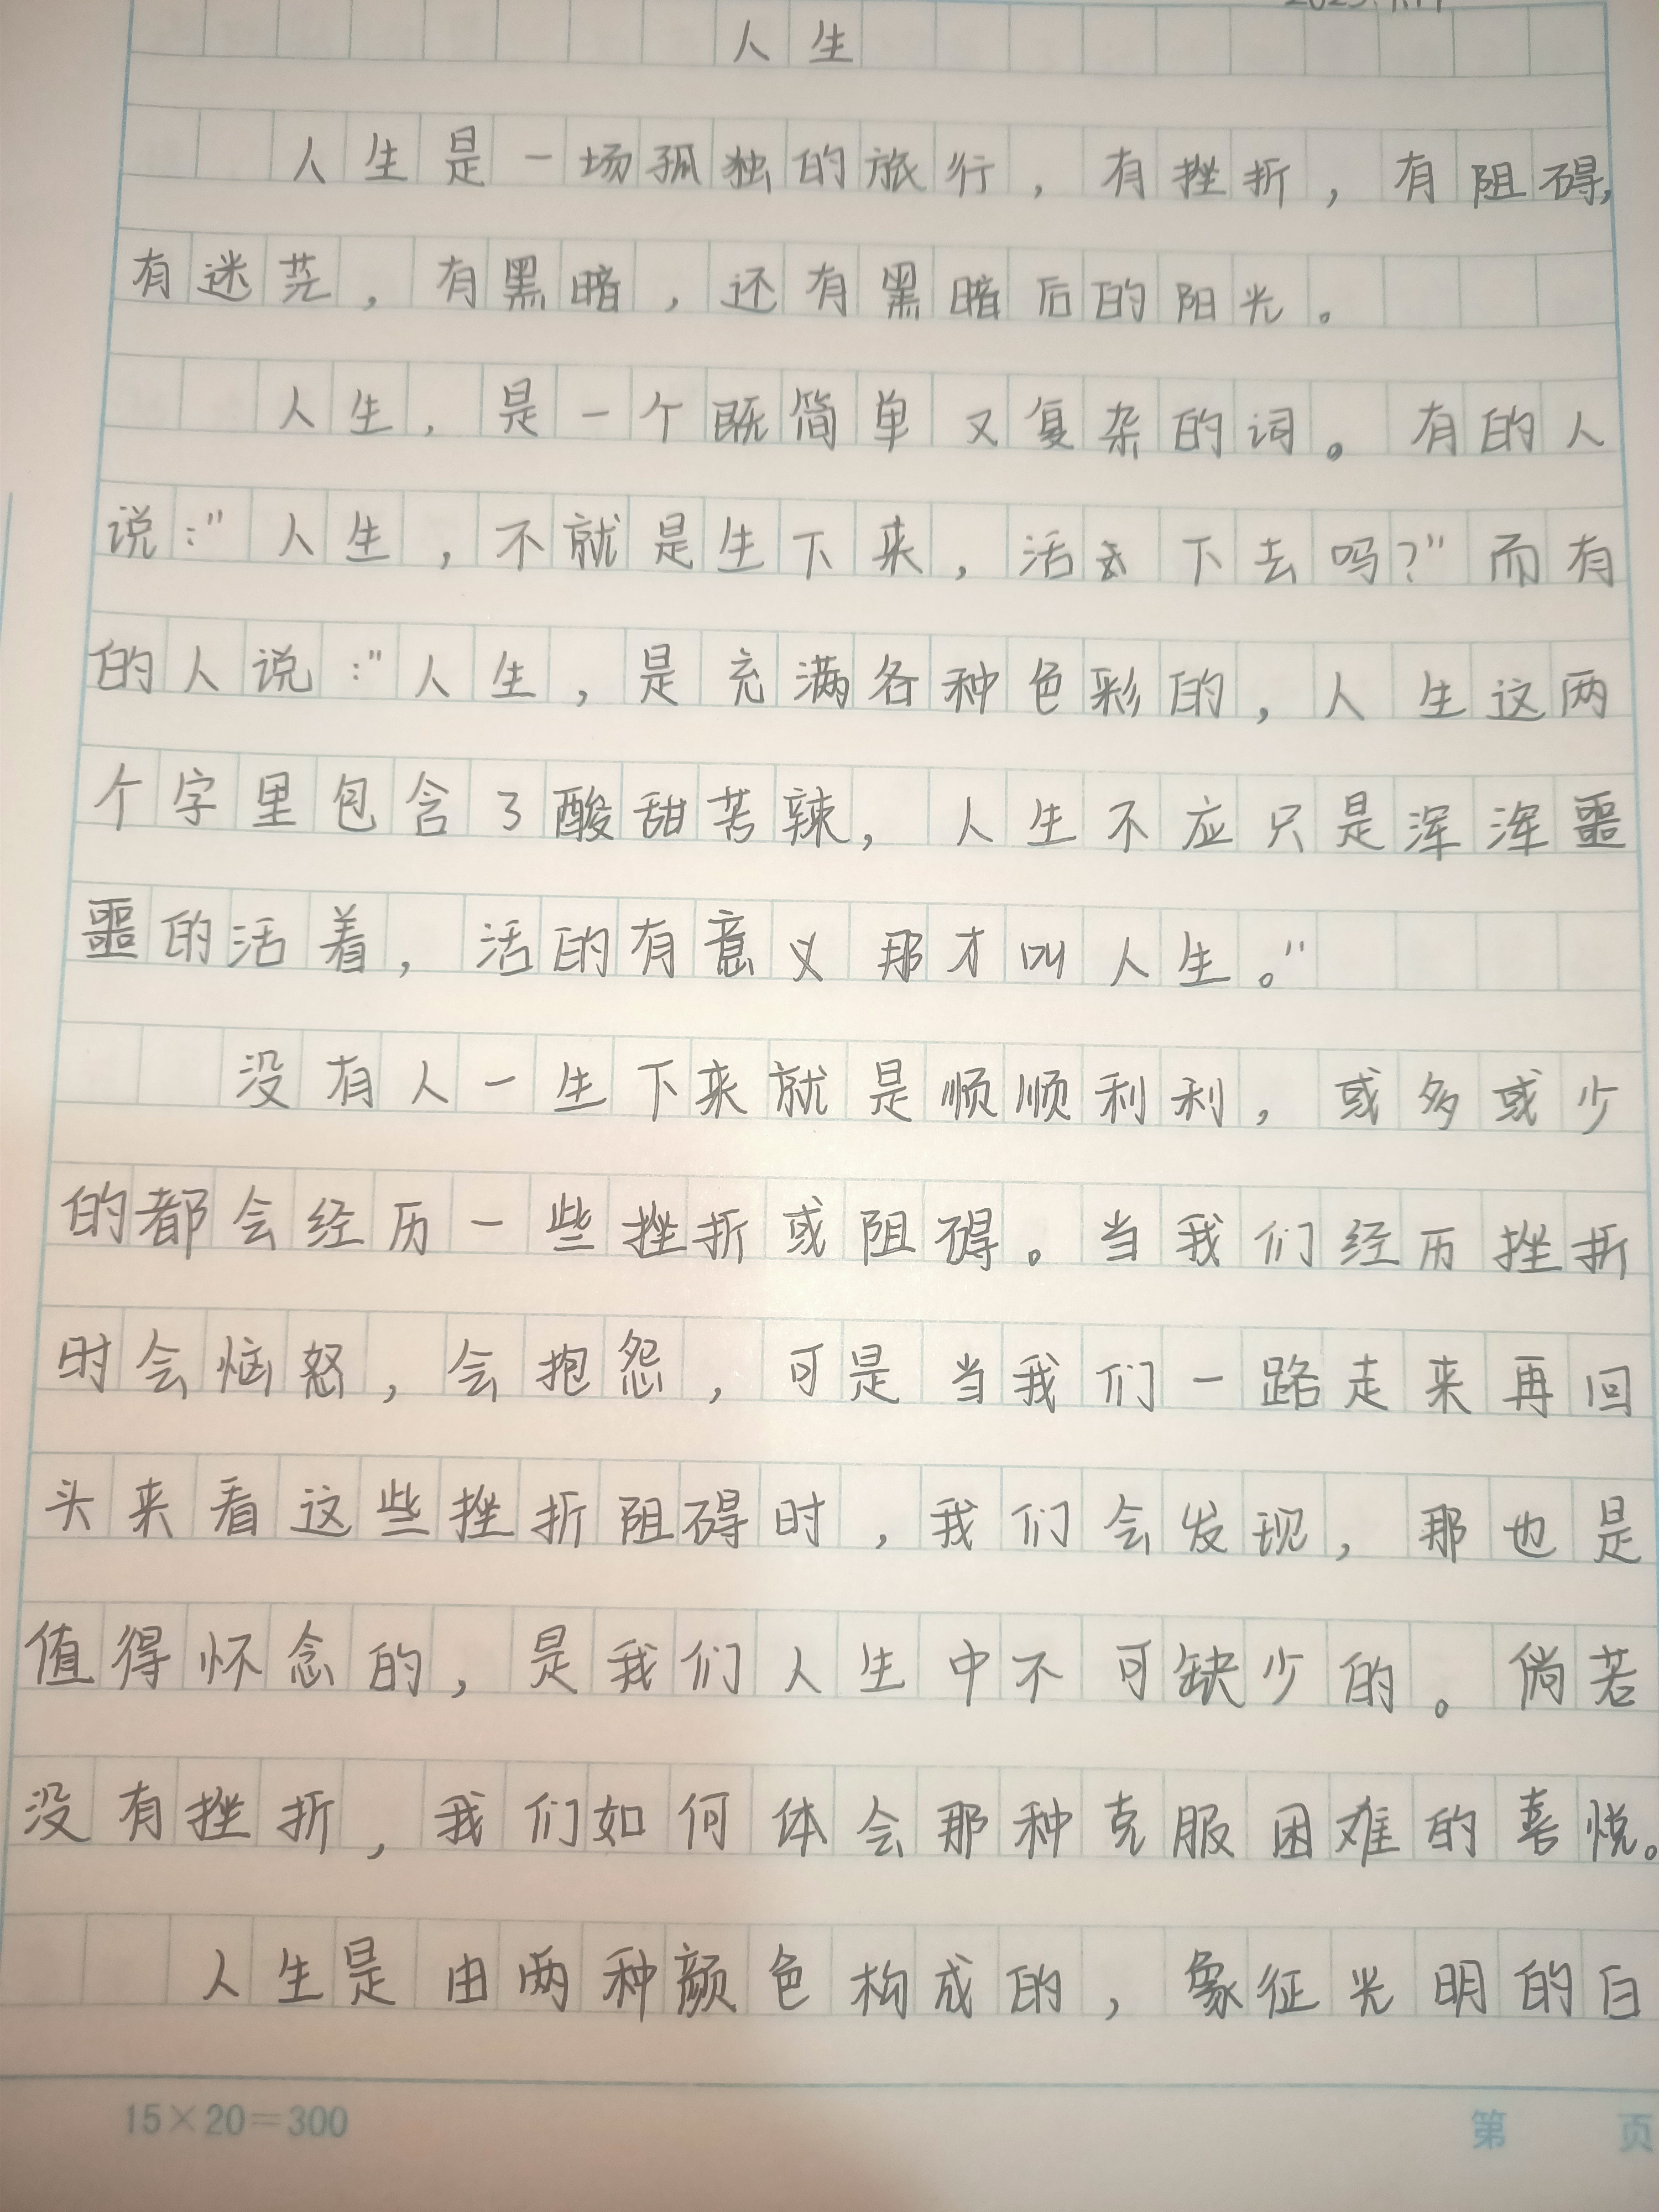 人生
人生是一场孤独的旅行，有挫折，有阻碍，
有迷茫，有黑暗，还有黑暗后的阳光。
人生，是一个既简单又复杂的词。有的人
说："人生，不就是生下来，活下去吗？"而有
的人说："人生，是充满各种色彩的，人生这两
个字里包含了酸甜苦辣，人生不应只是浑浑噩
噩的活着，活的有意义那才叫人生。"
没有人一生下来就是顺顺利利，或多或少
的都会经历一些挫折或阻碍。当我们经历挫折
时会恼怒，会抱怨，可是当我们一路走来再回
头来看这些挫折阻碍时，我们会发现，那也是
值得怀念的，是我们人生中不可缺少的。倘若
没有挫折，我们如何体会那种克服困难的喜悦。
人生是由两种颜色构成的，象征光明的白
15×20=300
第 页